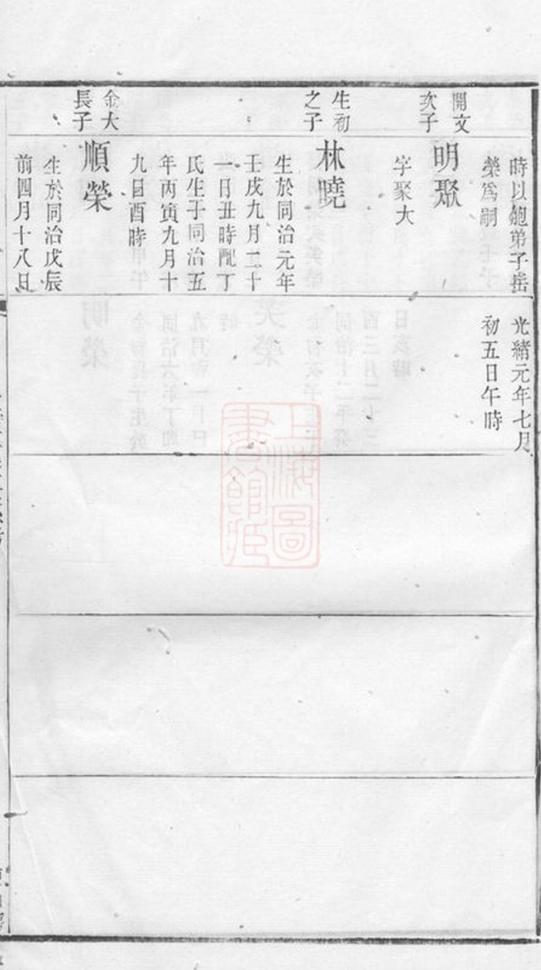 時以䶌弟子岳
榮爲嗣
開文
次子
明聚
字聚大
生初
之子
林曉
生於同治元年
壬戌九月二十
一日丑時配丁
氏生子同治五
年丙寅九月十
九日酉時
金大
長子
順榮
生於同治戊辰
前四月十八日
光緒元年七月
初五日午時
上海圖
書館藏